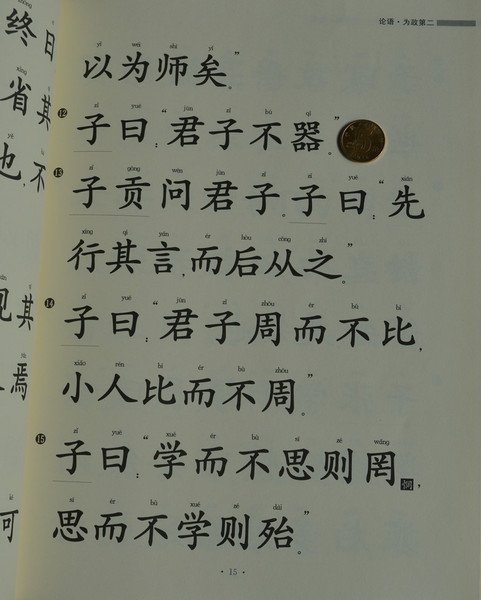 论语·为政第二
yǐ wéi shī yǐ
以为师矣。”
zǐ yuē jūn zǐ bù qì
⑫ 子曰：“君子不器。”
zǐ gòng wèn jūn zǐ zǐ yuē xiān
⑬ 子贡问君子。子曰：“先
xíng qí yán ér hòu cóng zhī
行其言，而后从之。”
zǐ yuē jūn zǐ zhōu ér bù bǐ
⑭ 子曰：“君子周而不比，
xiǎo rén bǐ ér bù zhōu
小人比而不周。”
zǐ yuē xué ér bù sī zé wǎng
⑮ 子曰：“学而不思则罔，
sī ér bù xué zé dài
思而不学则殆。”
·15·
终日
省其
yě
也，不
见其
yān
焉
可